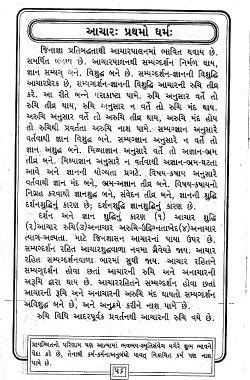 આચારઃ પ્રથમો ધર્મઃ
જિનાજ્ઞા પ્રતિબદ્ધતાથી આચારપાલનમાં ભાવિત થવાય છે.
સમર્પિત બનાય છે. આચારપાલનથી સમ્યગ્દર્શન નિર્મળ થાય,
જ્ઞાન સમ્યગ્ બને. વિશુદ્ધ બને છે. સમ્યગ્દર્શન-જ્ઞાનની વિશુદ્ધિ
આચારપ્રેરક છે, સમ્યગ્દર્શન-જ્ઞાનની વિશુદ્ધિ આચારની રુચિ તીવ્ર
કરે. આ રીતે બન્ને પરાકાષ્ટા પામે. રુચિ અનુસાર વર્તે તો
રુચિ તીવ્ર થાય, રુચિ અનુસાર ન વર્તે તો રુચિ મંદ થાય,
અરુચિ અનુસાર વર્તે તો અરુચિ તીવ્ર થાય, અરુચિ મંદ હોય
તો રુચિથી પ્રવર્તતા અરુચિ નાશ પામે. સમ્યગ્જ્ઞાન અનુસારે
વર્તવાથી જ્ઞાન વિશુદ્ધ બને છે. સમ્યગ્જ્ઞાન અનુસાર ન વર્તે તો
જ્ઞાન અશુદ્ધ બને. મિથ્યાજ્ઞાન અનુસારે વર્તે તો અજ્ઞાન-ભ્રમ
તીવ્ર બને. મિથ્યાજ્ઞાન અનુસારે ન વર્તવાથી અજ્ઞાન-ભ્રમ-ઘટતા
આવે અને જ્ઞાનની યોગ્યતા પ્રગટે. વિષય-કષાય અનુસારે
વર્તવાથી જ્ઞાન મંદ બને, ભ્રમ-અજ્ઞાન તીવ્ર બને. વિષય-કષાયનો
નિગ્રહ કરવાથી જ્ઞાનશુદ્ધ બને, સંવેદન તીવ્ર બને, જ્ઞાનની શુદ્ધિ
દર્શનશુદ્ધિનું કારણ છે; દર્શનશુદ્ધિ જ્ઞાનશુદ્ધિનું કારણ છે.
દર્શન અને જ્ઞાન શુદ્ધિનું કારણ (૧) આચાર શુદ્ધિ
(૨)આચાર રુચિ(૩)અનાચાર અરુચિ-ઉદ્વિગ્નતાખેદ(૪)અનાચાર
ત્યાગ-અલ્પતા. માટે જિનશાસન આચારનાં પાયા ઉપર છે.
સમ્યગ્દર્શન રહિત આચારશુદ્ધવાળા નવમા ગ્રૈવેયકે જાય; આચાર
રહિત સમ્યગ્દર્શનવાળા બારમાં સુધી જાય. આચાર રહિતને
સમ્યગ્દર્શન હોવા છતાં આચારની રુચિ અને અનાચારની
અરૂચિ દ્વારા થાય છે. આચારરહિતને સમ્યગ્દર્શન હોવા છતાં
આચારની રુચિ અને અનાચારની અરુચિ મંદ થાયતો સમ્યગ્દર્શન
અવિશુદ્ધ બને છે, અને અનુક્રમે કરીને નાશ પામે છે.
રુચિ વિધિ આદરપૂર્વક પ્રવર્તનથી આચારની રુચિ વધે છે.
પ્રાયશ્ચિત્તનો પરિણામ પણ આત્મામાં
પેદા કરે છે, તેનાથી કર્મ-કર્મનાઅનુબંધો યાવત્ નિકાચિત કર્મ પણ નાશ
પામે છે.
૫૬